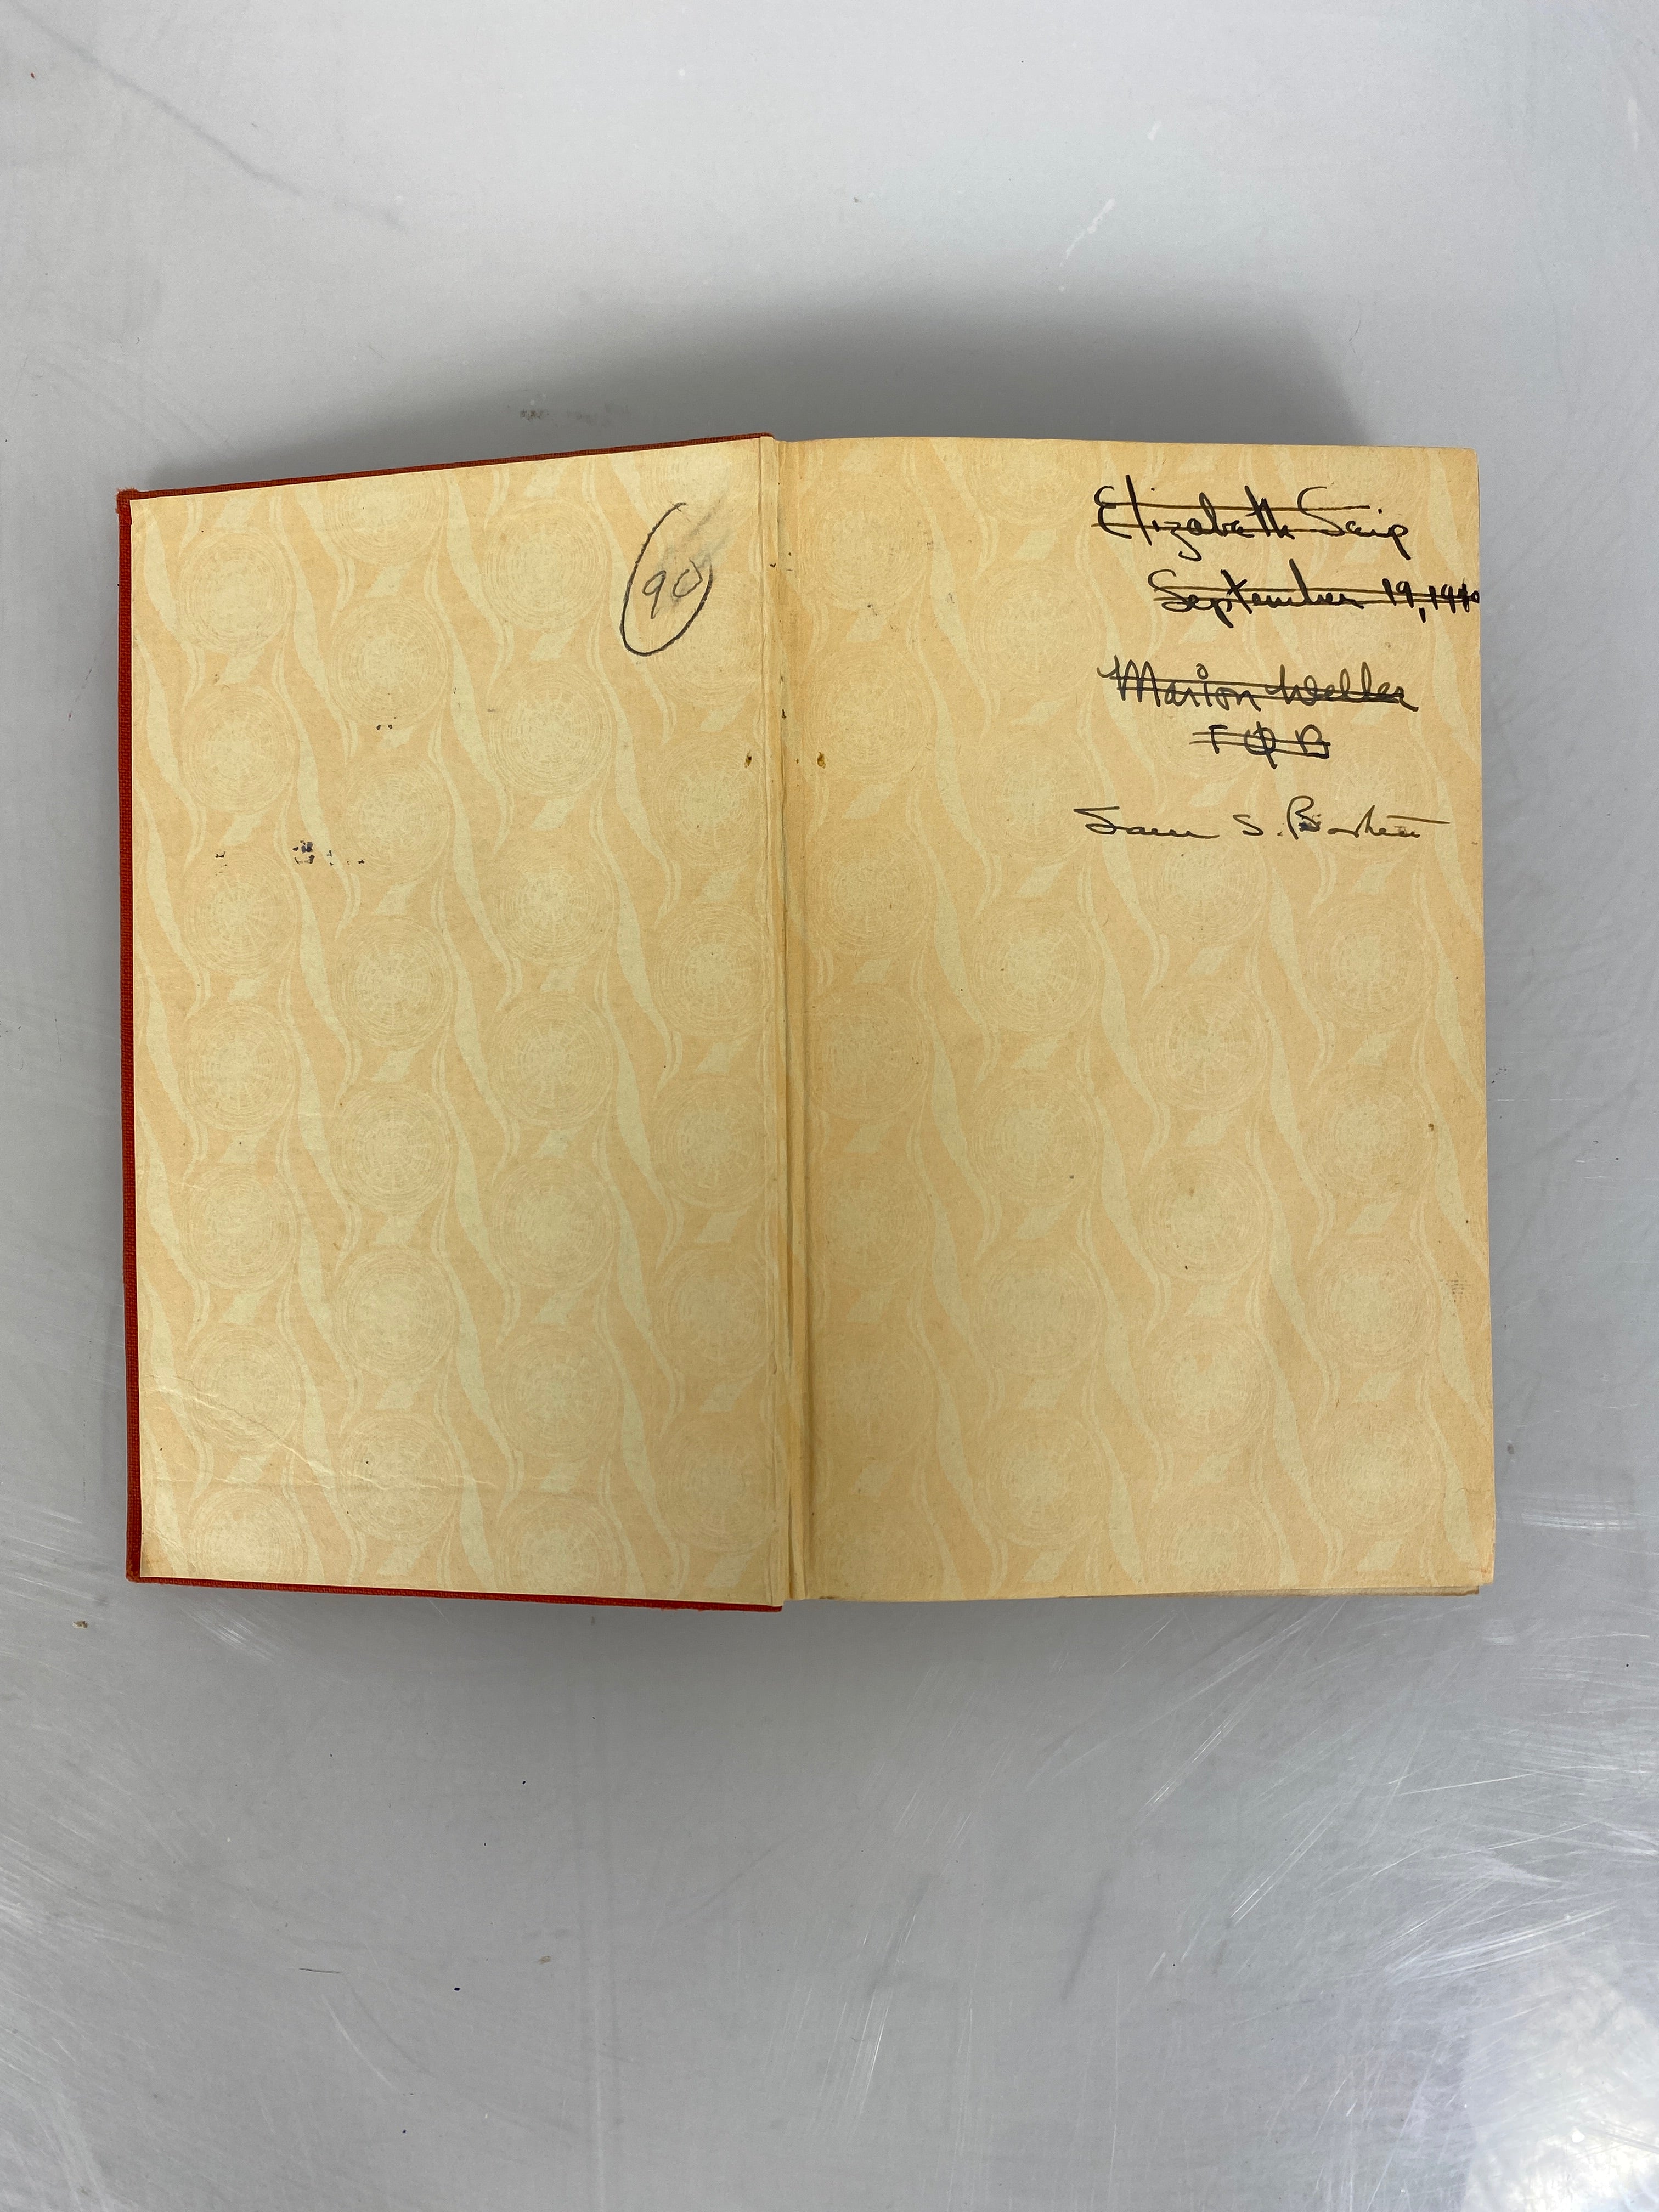 90
Elizabeth Seip
September 19, 1940
Marion Weller
ΓΦΒ
Sam S.